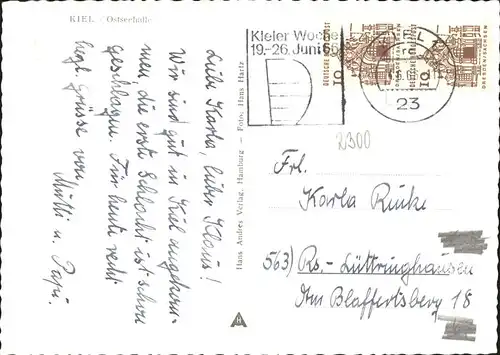 KIEL / Ostseehalle
Liebe Karla, lieber Klaus!
Wir sind gut in Kiel angekom-
men die erste Schlacht ist schon
geschlagen. Für heute recht
hrzl. Grüsse von
Mutti u. Papi.
Hans Andres Verlag, Hamburg – Foto: Hans Hartz
Kieler Woche
19.-26. Juni 66
DEUTSCHE BUNDESPOST
10
DRESDEN/SACHSEN
DEUTSCHE BUNDESPOST
10
DRESDEN/SACHSEN
23
2300
Frl.
Karla Rucke
563) Rs.-Lüttringhausen
Am Blaffertsberg 18